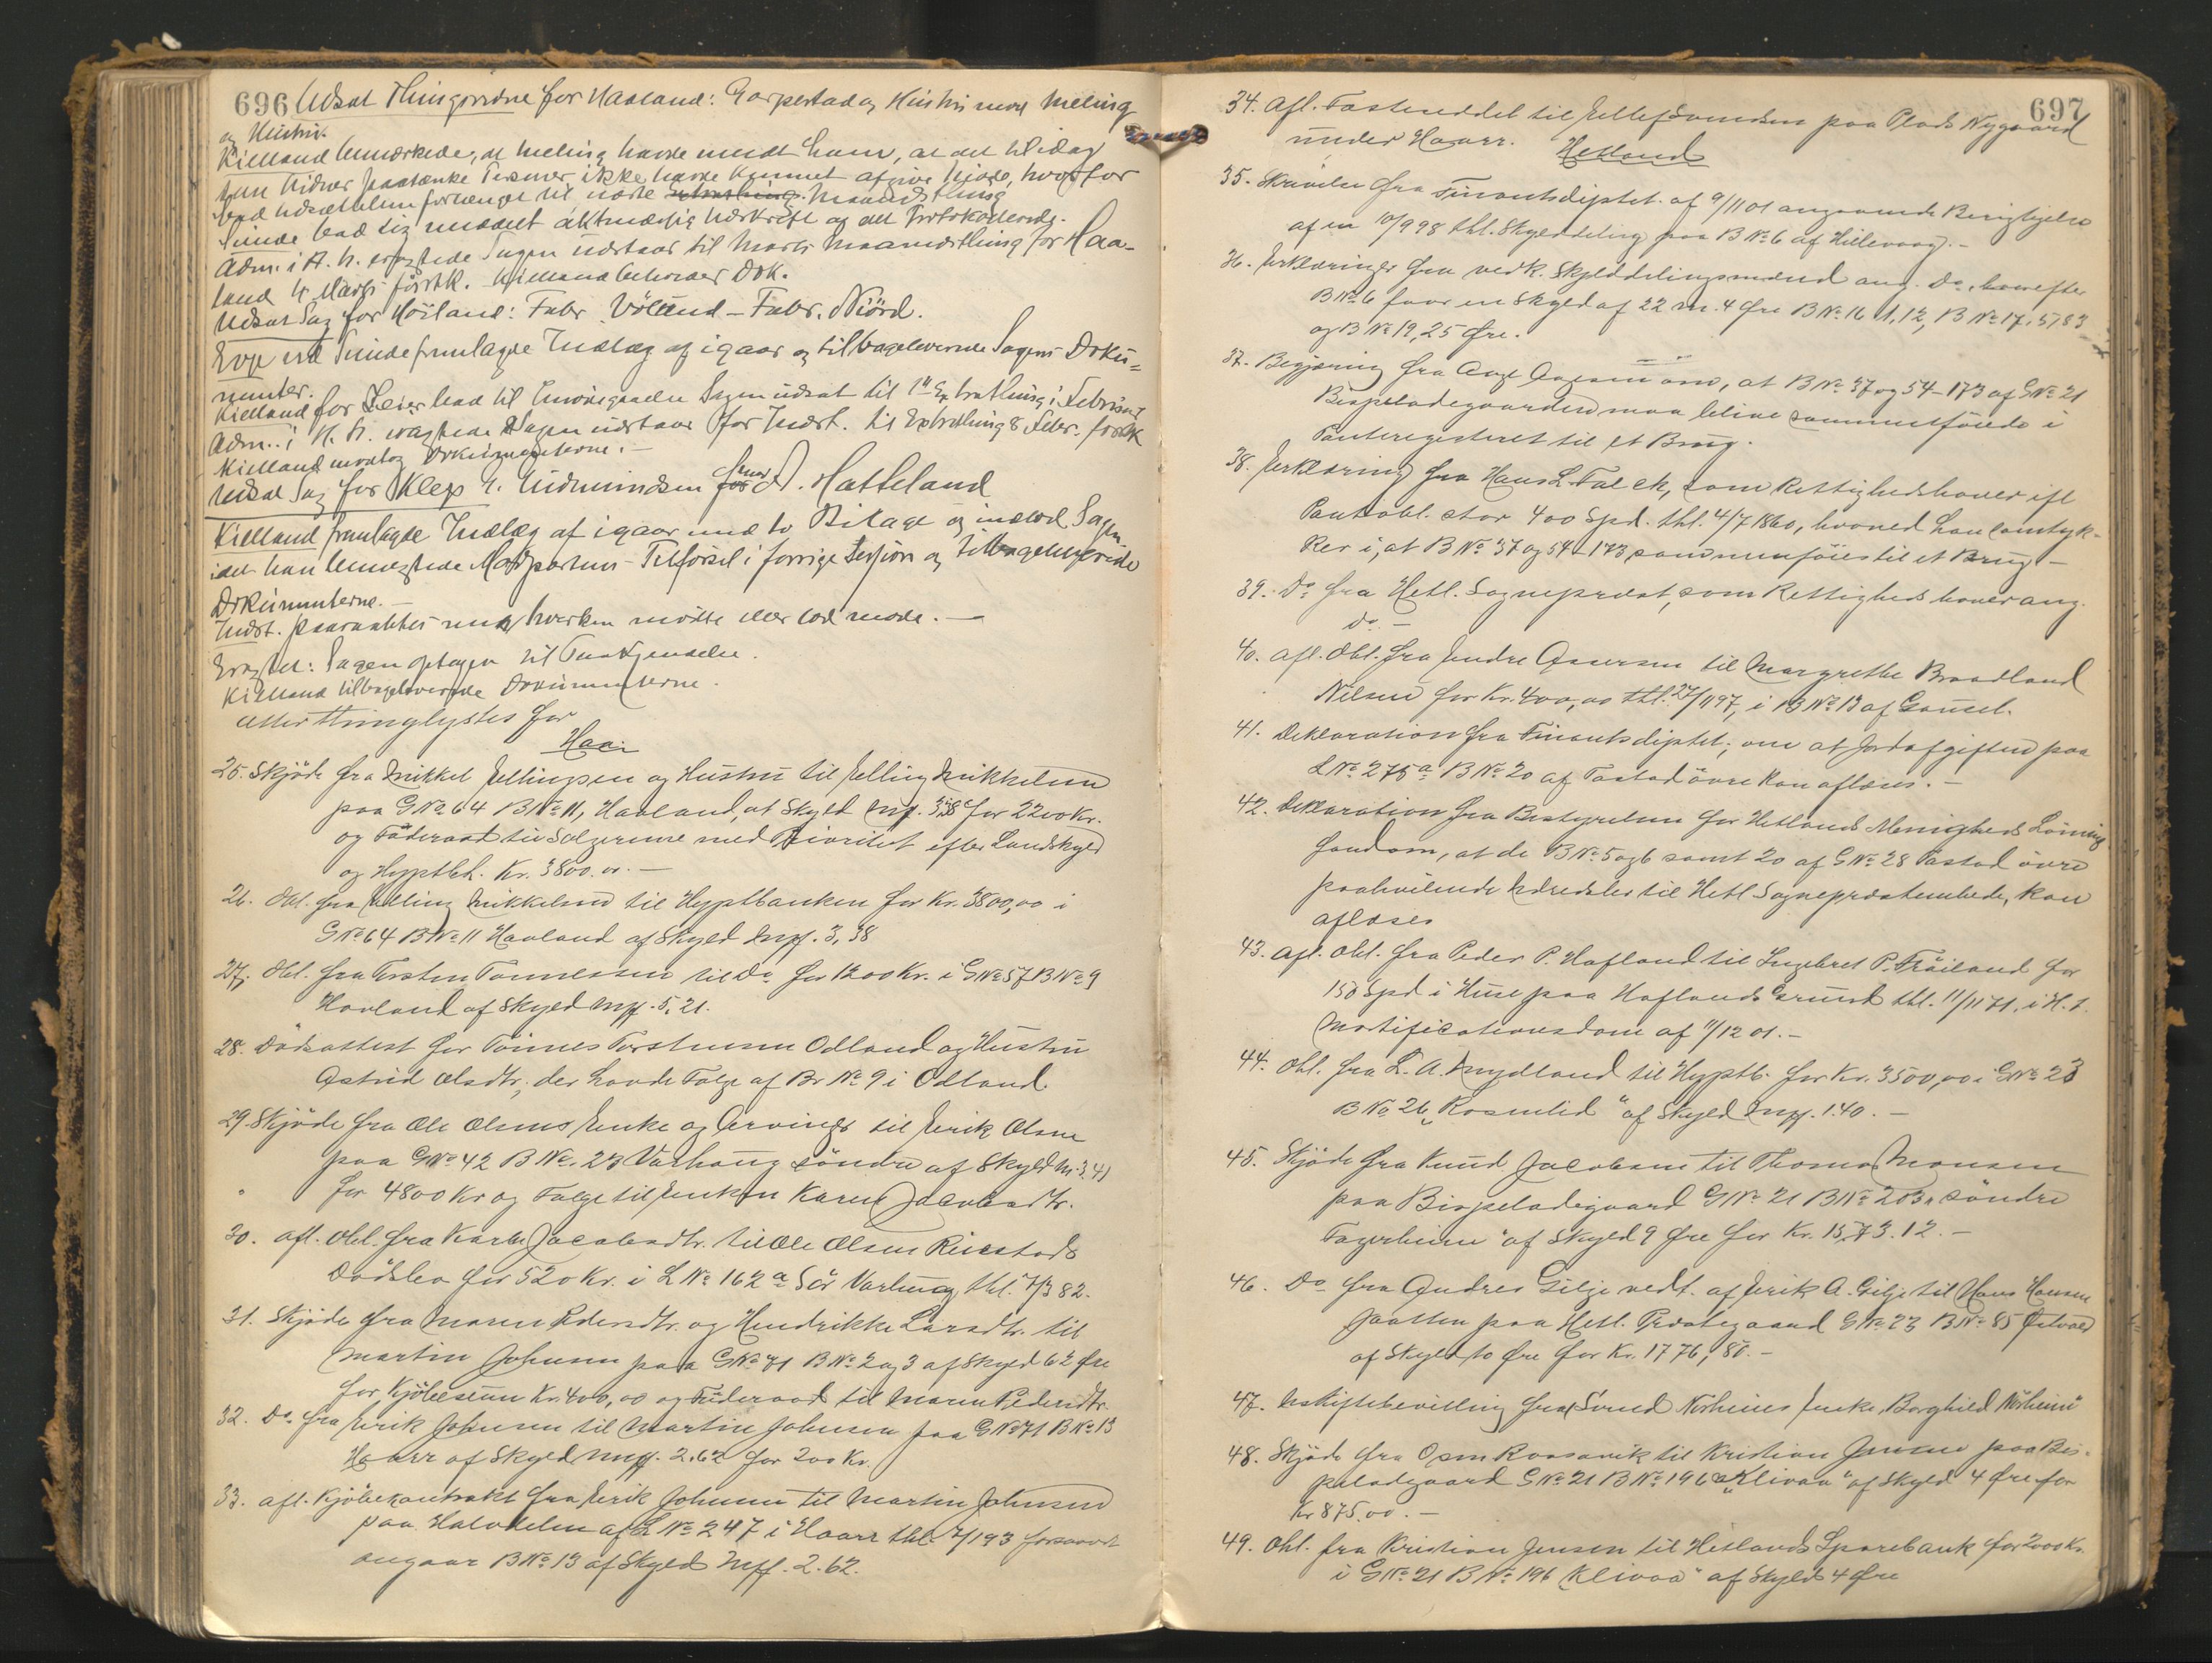 696 Udsat Thingvidne for Haaland: Garpestad og Hustru mod Meling
og Hustru.
Kielland bemærkede, at Meling havde meddt ham, at det til idag
som Vidner paatænkte Personer ikke havde kunnet afgive Møde, hvorfor
bad Udsættelsen forlænget til næste Extrathing Maanedsthing
Sunde bad sig meddelt aktmæssig Udskrift af det Protokollerede.
Adm. i H. h. eragtede Sagen udstaar til Marts Maanedsthing for Haa-
land 4 Marts förstk. Kielland beholder Dok.
Udsat Sag for Höiland: Fabr. Völund – Fabr. Njörd.
Evje ved Sunde fremlagde Indlæg af igaar og tilbageleverede Sagens Doku-
menter.
Kielland for Leier bad til Imödegaaelse Sagen udsat til 1st Extrathing i Februar
Adm. i H. h. eragtede Sagen udstaar for Indst. til Extrathing 8 Febr. förstk
Kielland modtog Dokumenterne. –
Udsat Sag for Klep E. Gudmundsen mod A. Hatteland
Kielland fremlagde Indlæg af igaar med to Bilage og indlod Sagen
idet han benegtede Modpartens Tilförsel i forrige Session og tilbageleverede
Dokumenterne. –
Indst. paaraabtes men hverken mödte eller lod möde. –
Eragtet: Sagen optagen til Paakjendelse.
Kielland tilbageleverede Dokumenterne.
Atter thinglystes for
Haa:
25. Skjöde fra Mikkel Ellingsen og Hustru til Elling Mikkelsen
paa GNo 64 BNo 11, Haaland, af Skyld Mrk. 3,38 for 2200 Kr.
og Föderaad til Sælgerne med Prioritet efter Landskyld
og Hyptbk. Kr. 3800.00. –
26. Obl. fra Elling Mikkelsen til Hyptbanken for Kr. 3800,00 i
GNo 64 BNo 11 Haaland af Skyld Mrk. 3,38
27. Obl. fra Torsten Tonnessen til Do for 1200 Kr. i GNo 57 BNo 9
Haaland af Skyld Mrk. 5,21.
28. Dödsattest for Tönnes Torstensen Odland og Hustru
Astrid Olsdtr, der havde Folge af Br No 9 i Odland
29. Skjöde fra Ole Olsens Enke og Arvinger til Erik Olsen
paa GNo 42 BNo 23 Varhaug söndre af Skyld M. 3,41
for 4800 Kr og Folge til Enken Karen Jacobsdtr.
30. Afl. Obl. fra Karen Jacobsdtr. til Ole Olsen Ruestads
Dödsbo for 520 Kr. i LNo 162a Sör Varhaug thl. 7/3 82.
31. Skjöde fra Maren Pedersdtr. og Hendrikke Larsdtr. til
Martin Johnsen paa GNo 71 BNo 2 og 3 af Skyld 62 Öre
for Kjöbesum Kr. 400,00 og Föderaad til Maren Pedersdtr.
32. Do fra Erik Johnsen til Martin Johnsen paa GNo 71 BNo 13
Haarr af Skyld Mrk. 2.62 for 200 Kr.
33. Afl. Kjöbekontrakt fra Erik Johnsen til Martin Johnsen
paa Halvdelen af LNo 247 i Haarr thl. 7/1 93 forsaavidt
angaar BNo 13 af Skyld Mrk. 2.62.
697
34. Afl. Fasteseddel til Ellef Svendsen paa Plads Nygaard
under Haarr.
Hetland
35. Skrivelse fra Finantsdeptet. af 9/11 01 angaaende Berigtigelse
af en 10/9 98 thl. Skylddeling paa BNo 6 af Hillevaag. –
36. Erklæringer fra vedk. Skylddelingsmænd ang. Do, hvorefter
BNo 6 faar en Skyld af 22 m. 4 Öre BNo 16 1,12, BNo 17. 5,83
og BNo 19, 25 Öre.
37. Begjæring fra Aage Aagesen om, at BNo 37 og 54–173 af GNo 21
Bispeladegaarden maa blive sammenföiede i
Panteregisteret til et Brug.
38. Erklæring fra Hans L. Falck, som Rettighedshaver ifl
Pantobl. stor 400 Spd. thl. 4/7 1860, hvorved han samtyk-
ker i, at BNo 37 og 54–173 sammenföies til et Brug –
39. Do fra Hetl. Sogneprest, som Rettighedshaver ang.
do. –
40. Afl. Obl. fra Endre Assersen til Margrethe Braadland
Nilsen for Kr. 400,00 thl. 27/11 97, i BNo 13 af Gausel.
41. Deklaration fra Finantsdeptet; om at Jordafgiften paa
LNo 275a BNo 20 af Tastad övre kan aflöses. –
42. Deklaration fra Bestyrelsen for Hetlands Menigheds Lönnings
fond om, at de BNo 5 og 6 samt 20 af GNo 28 Tastad övre
paahvilende Udredsler til Hetl. Sogneprestembede, kan
aflöses
43. Afl. Obl. fra Peder P. Hafland til Ingebret P. Tröiland for
150 Spd i Huse paa Haflands Grund thl. 11/11 71. i H. t.
Mortificationsdom af 11/12 01. –
44. Obl. fra L. A. Mydland til Hyptb. for Kr. 3500,00 i GNo 23
BNo 26 „Rosenlid“ af Skyld Mrk. 1.40. –
45. Skjöde fra Knud Jacobsen til Thomas Monsen
paa Bispeladegaard GNo 21 BNo 203 „söndre
Fagerheim“ af Skyld 9 Öre for Kr. 1573.12. –
46. Do fra Andres Gilje vedt. af Erik A. Gilje til Hans Hansen
Jaatten paa Hetl. Prestegaard GNo 23 BNo 85 Östvold
af Skyld 10 Öre for Kr. 1776,80. –
47. Uskiftebevilling fra Svend Norheims Enke, Borghild Norheim
48. Skjöde fra Osm Roosavik til Kristian Jensen paa Bis-
peladegaard GNo 21 BNo 196 „Klivaa“ af Skyld 4 Öre for
Kr 875,00. –
49. Obl. fra Kristian Jensen til Hetlands Sparebank for 2000 Kr.
i GNo 21 BNo 196 „Klivaa“ af Skyld 4 Öre